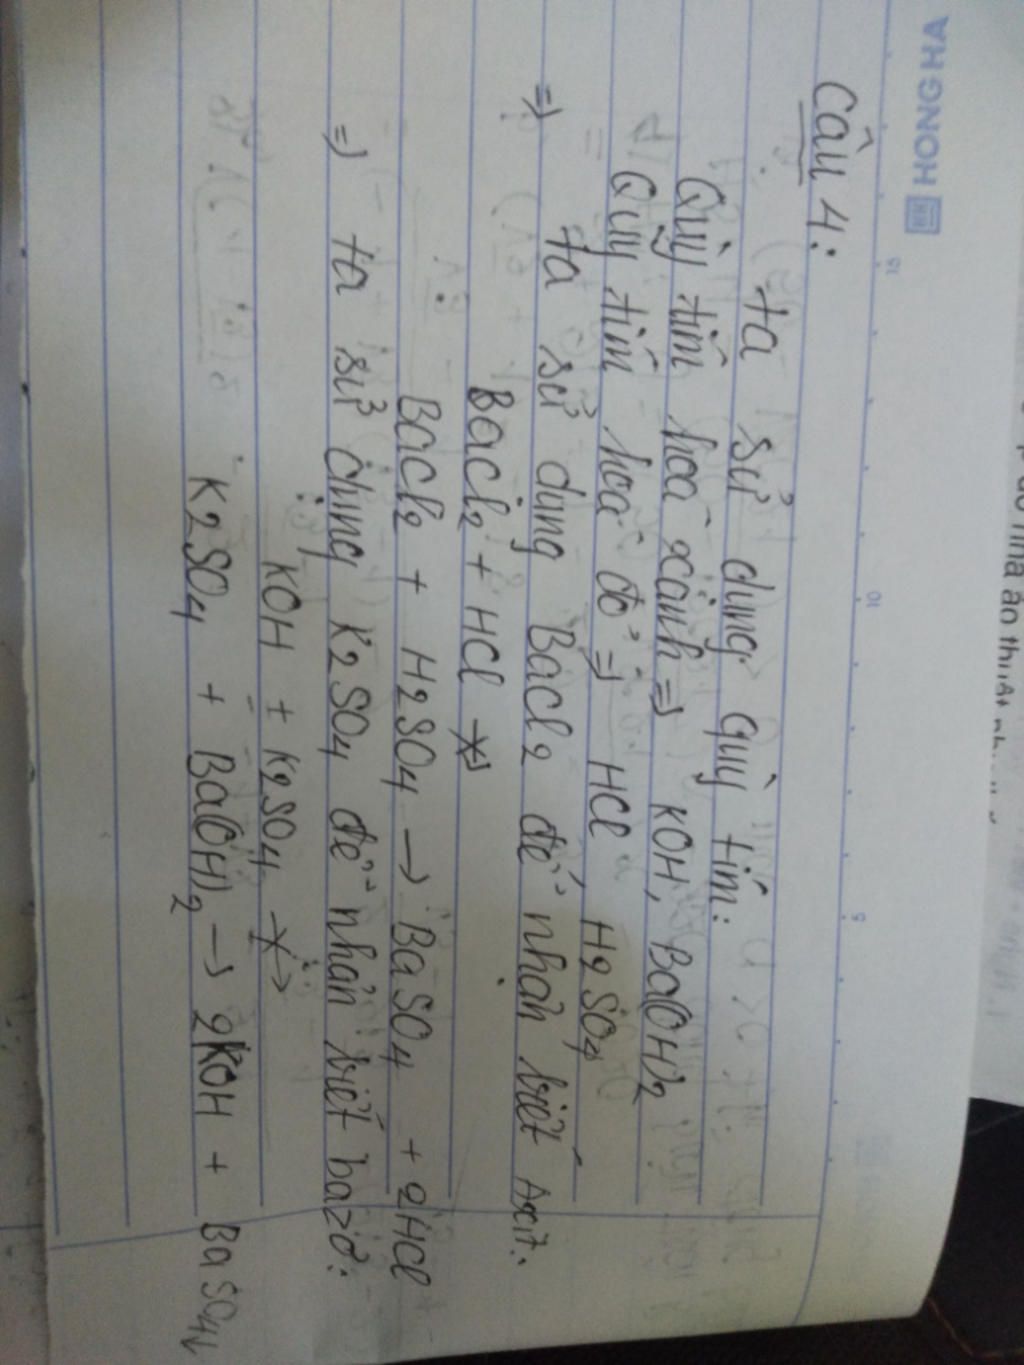 HONG HA
15 10 5
Câu 4:
ta sử dụng quỳ tím:
Quỳ tím hoá xanh => KOH, Ba(OH)2
Quỳ tím hoá đỏ => HCl H2SO4
=> ta sử dụng BaCl2 để nhận biết Axit:
BaCl2 + HCl ↛
BaCl2 + H2SO4 → BaSO4 + 2HCl
=> ta sử dụng K2SO4 để nhận biết bazơ:
KOH + K2SO4 ↛
K2SO4 + Ba(OH)2 → 2KOH + BaSO4↓